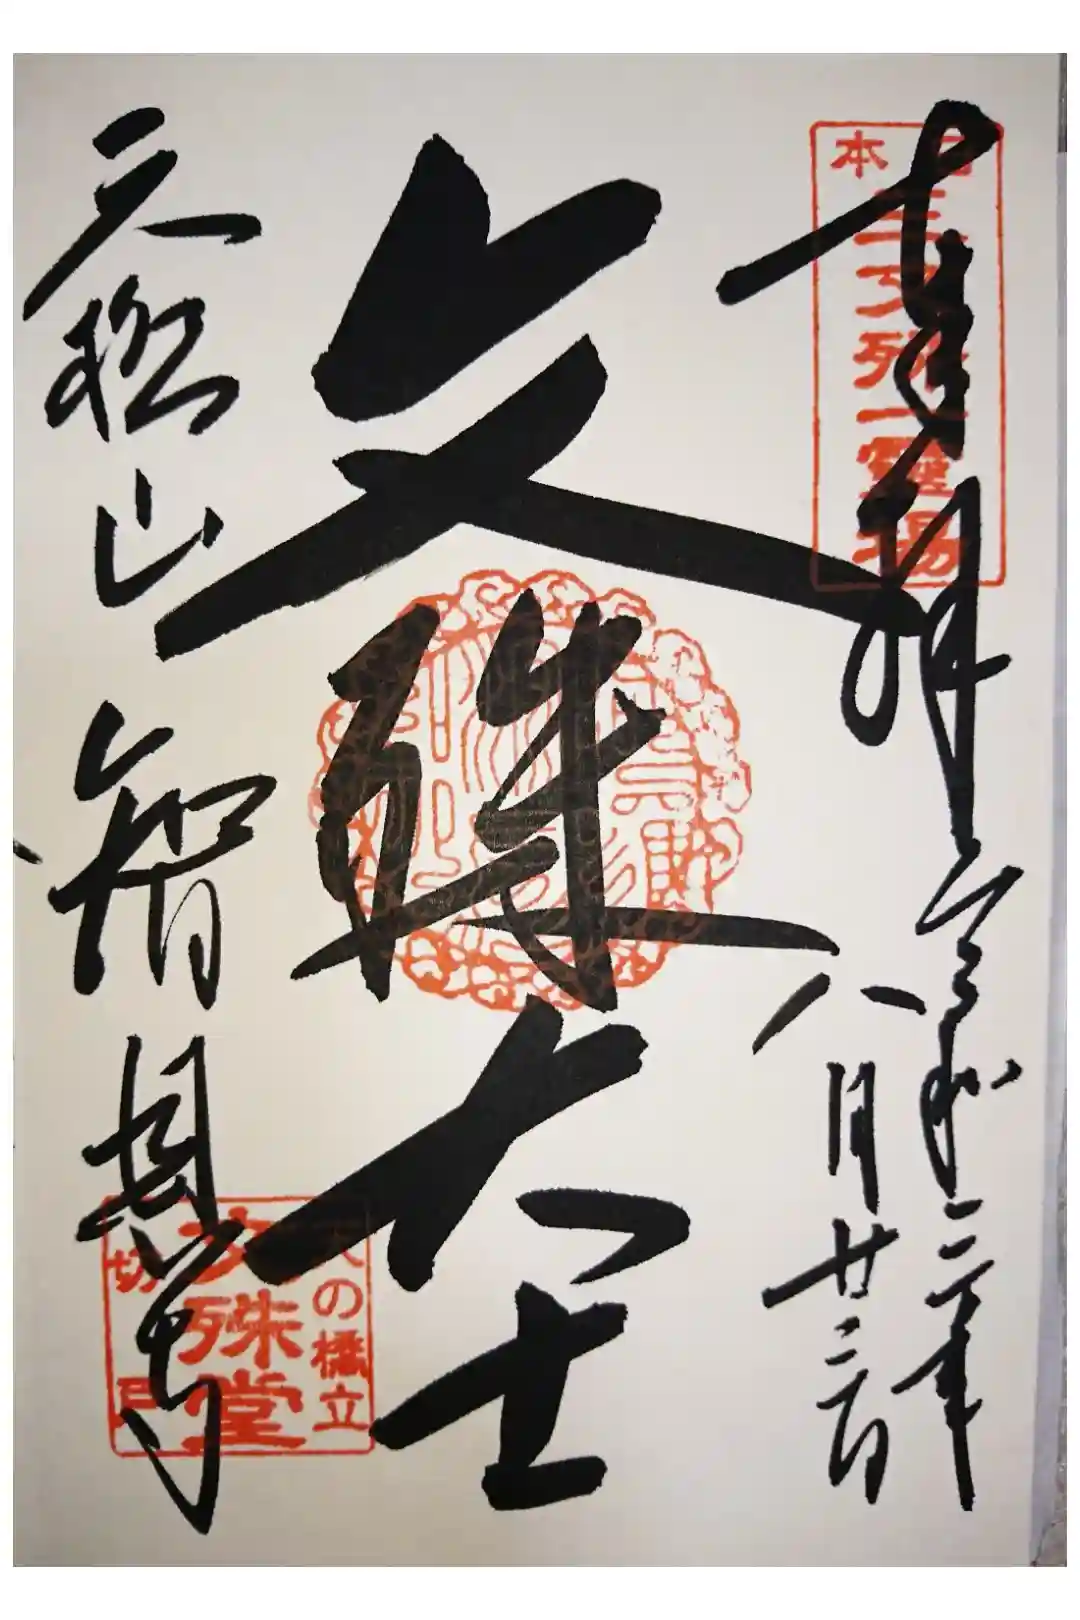 日本
三文殊一靈場
奉拝 令和二年
八月廿二日
文殊大士
天橋山 智恩寺
天の橋立
文殊堂
切戸